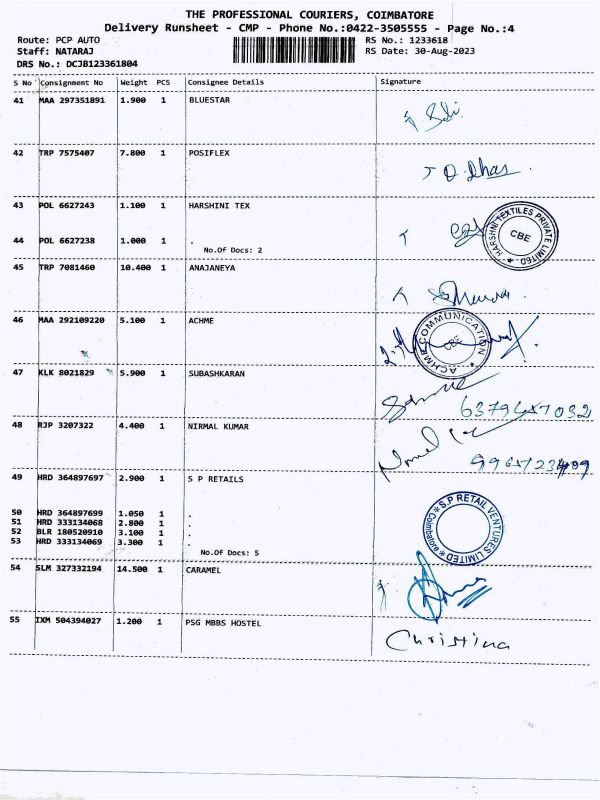 THE PROFESSIONAL COURIERS, COIMBATORE
Delivery Runsheet - CMP - Phone No.:0422-3505555 - Page No.:4
Route: PCP AUTO RS No.: 1233618
Staff: NATARAJ RS Date: 30-Aug-2023
DRS No.: DCJB123361804
S No Consignment No Weight PCS Consignee Details Signature
41 MAA 297351891 1.900 1 BLUESTAR
42 TRP 7575407 7.800 1 POSIFLEX
43 POL 6627243 1.100 1 HARSHINI TEX
HARSHNI TEXTILES PRIVATE LIMITED
CBE
44 POL 6627238 1.000 1 .
No.Of Docs: 2
45 TRP 7081460 10.400 1 ANAJANEYA
46 MAA 292109220 5.100 1 ACHME
ACHME COMMUNICATION
CBE
47 KLK 8021829 5.900 1 SUBASHKARAN
48 RJP 3207322 4.400 1 NIRMAL KUMAR
49 HRD 364897697 2.900 1 S P RETAILS
S.P RETAIL VENTURES LIMITED
Coimbatore
50 HRD 364897699 1.050 1 .
51 HRD 333134068 2.800 1 .
52 BLR 180520910 3.100 1 .
53 HRD 333134069 3.300 1 .
No.Of Docs: 5
54 SLM 327332194 14.500 1 CARAMEL
55 IXM 504394027 1.200 1 PSG MBBS HOSTEL
Christina